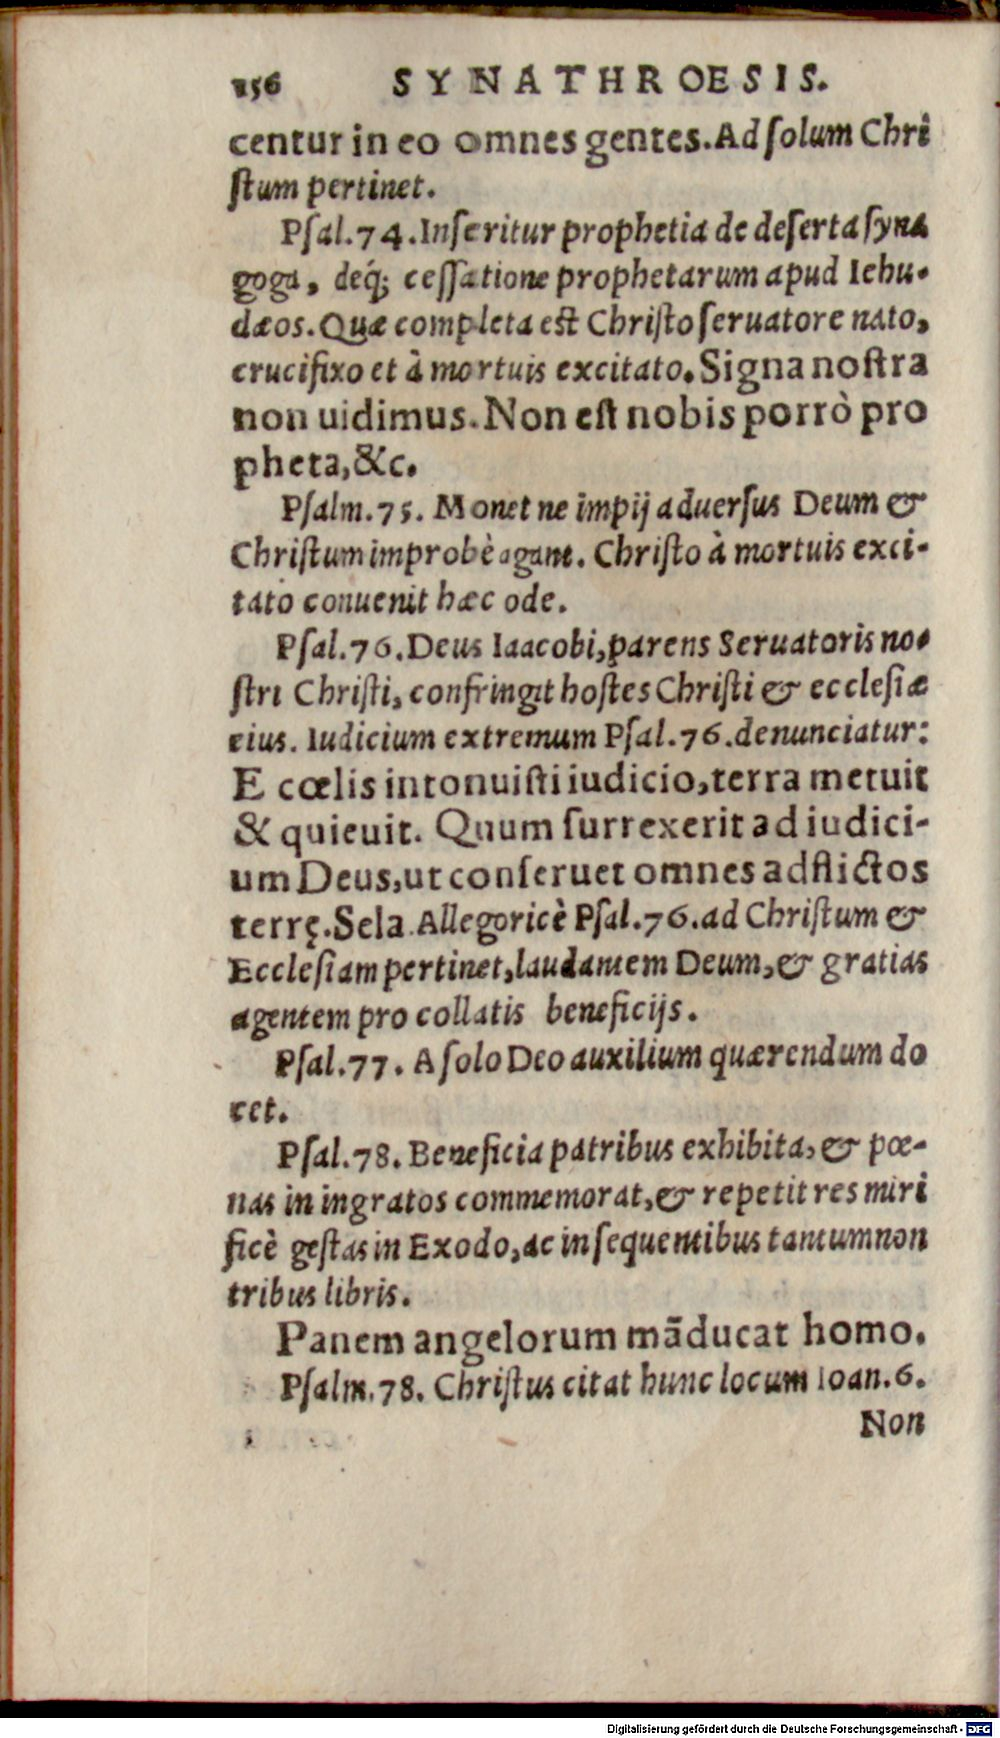 156 SYNATHROESIS.
centur in eo omnes gentes. Ad ſolum Chri
ſtum pertinet.
Pſal.74. Inſeritur prophetia de deſerta ſyna
goga, deq́; ceſſatione prophetarum apud Iehu-
dæos. Quæ completa eſt Chriſto ſeruatore nato,
crucifixo et à mortuis excitato. Signa noſtra
non uidimus. Non eſt nobis porrò pro
pheta, &c.
Pſalm.75. Monet ne impij aduerſus Deum &
Chriſtum improbè agant. Chriſto à mortuis exci-
tato conuenit hæc ode.
Pſal.76. Deus Iaacobi, parens Seruatoris no-
ſtri Chriſti, confringit hoſtes Chriſti & eccleſiæ
eius. Iudicium extremum Pſal.76. denunciatur:
E cœlis intonuiſti iudicio, terra metuit
& quieuit. Quum ſurrexerit ad iudici-
um Deus, ut conſeruet omnes adflictos
terrę. Sela. Allegoricè Pſal.76. ad Chriſtum &
Eccleſiam pertinet, laudantem Deum, & gratias
agentem pro collatis beneficijs.
Pſal.77. A ſolo Deo auxilium quærendum do
cet.
Pſal.78. Beneficia patribus exhibita, & pœ-
nas in ingratos commemorat, & repetit res miri
ficè geſtas in Exodo, ac inſequentibus tantumnon
tribus libris.
Panem angelorum mãducat homo.
Pſalm.78. Chriſtus citat hunc locum Ioan.6.
Non
Digitalisierung gefördert durch die Deutsche Forschungsgemeinschaft - DFG